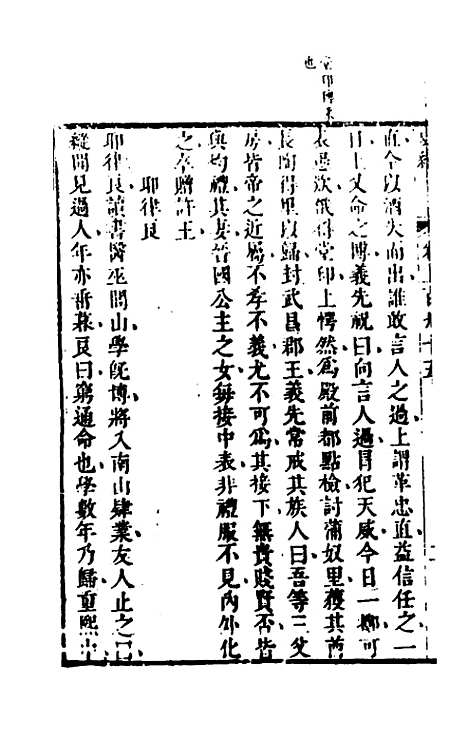 堂印牌采
也
直今以酒失而出誰敢言人之過上謂革忠直益信任之一
日上又命之博義先祝曰向言人過冒犯天威今日一擲可
表愚欵俄得堂印上愕然爲殿前都點檢討蒲奴里獲其酋
長陶得里以歸封武昌郡王義先常戒其族人曰吾等三父
房皆帝之近屬不孝不義尤不可爲其接下無貴賤賢否皆
與均禮其妻晉國公主之女每接中表非禮服不見內外化
之卒贈許王
耶律良
耶律良讀書醫巫閭山學旣博將入南山肄業友人止之
縱聞見過人年亦垂暮良曰窮通命也學數年乃歸重熙中